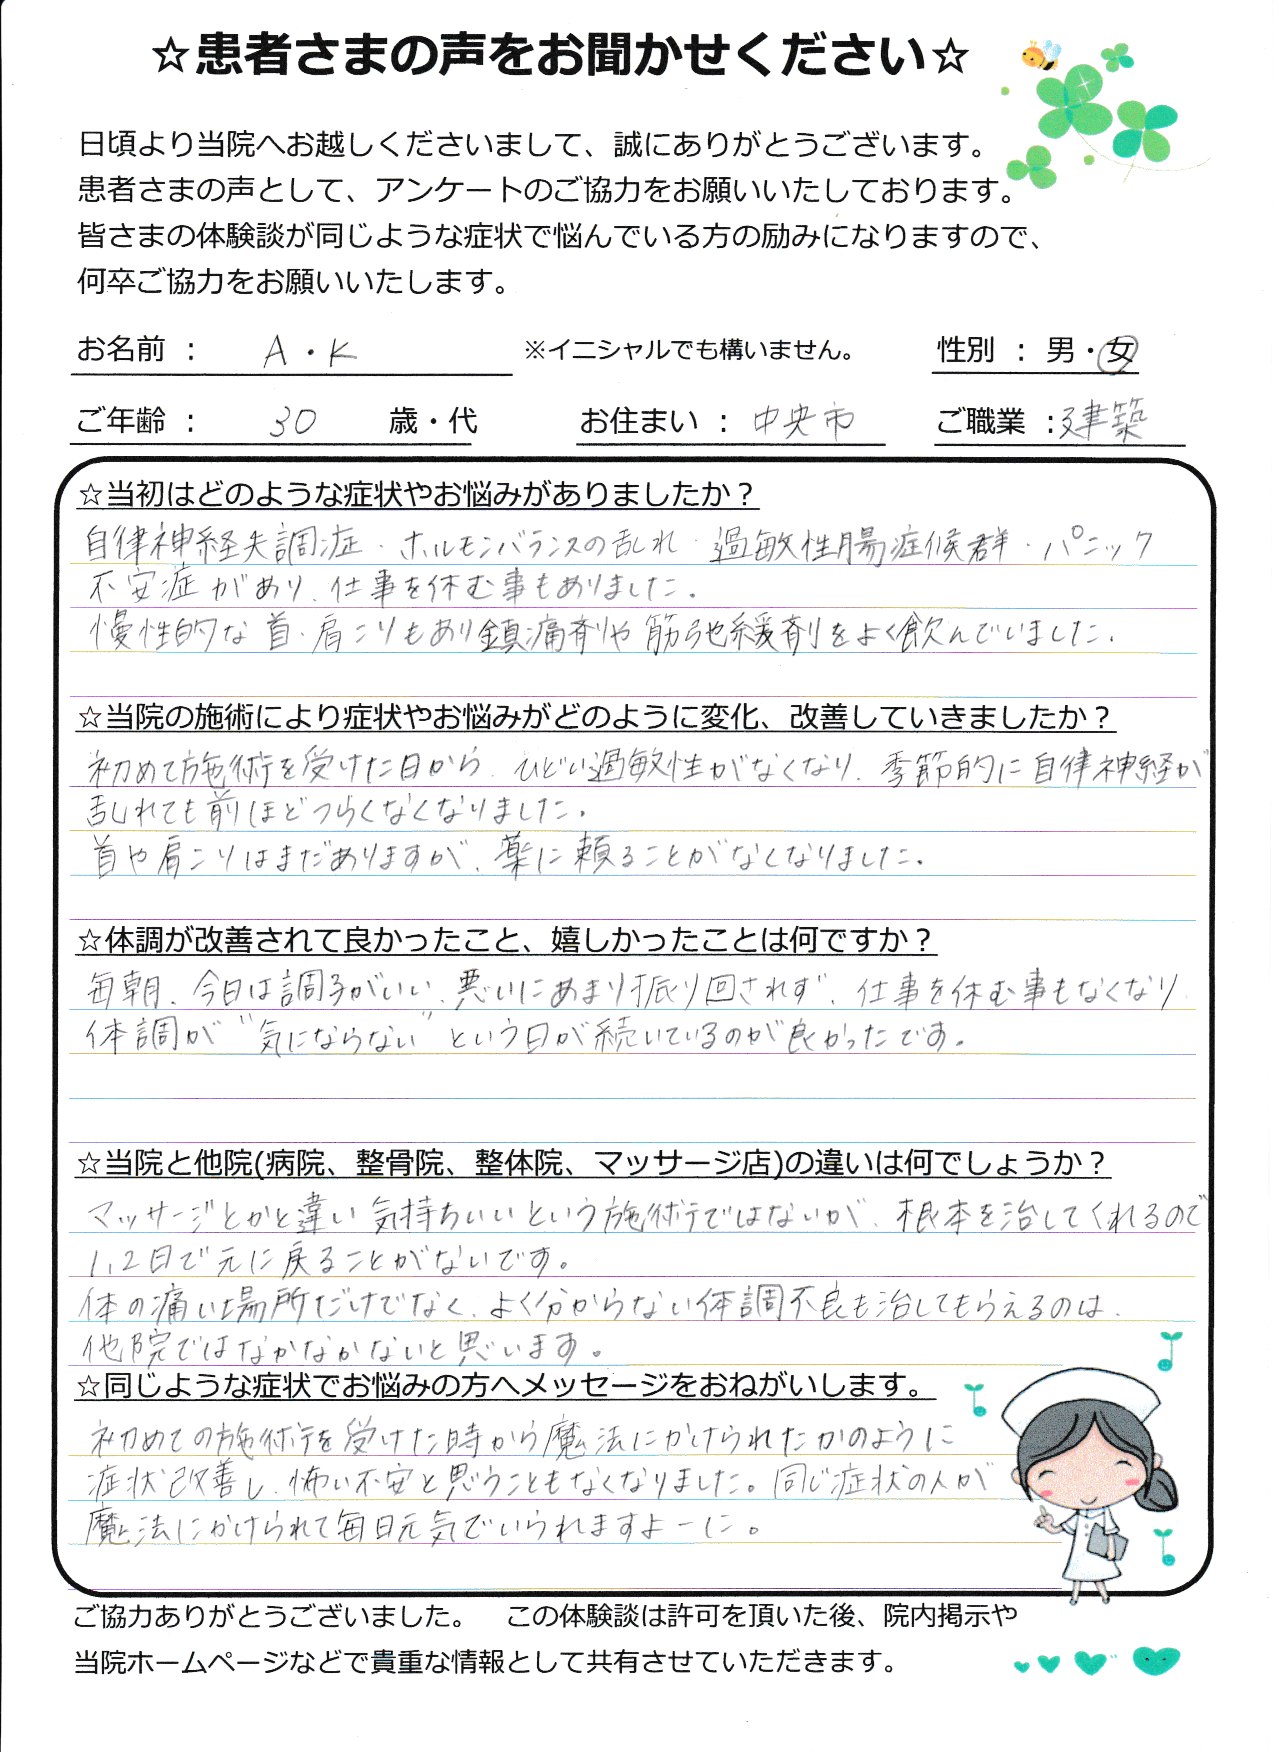 ☆患者さまの声をお聞かせください☆
日頃より当院へお越しくださいまして、誠にありがとうございます。
患者さまの声として、アンケートのご協力をお願いいたしております。
皆さまの体験談が同じような症状で悩んでいる方の励みになりますので、
何卒ご協力をお願いいたします。
お名前 : A・K ※イニシャルでも構いません。 性別 : 男・女
ご年齢 : 30 歳・代 お住まい : 中央市 ご職業 : 建築
☆当初はどのような症状やお悩みがありましたか？
自律神経失調症・ホルモンバランスの乱れ・過敏性腸症候群・パニック
不安症があり、仕事を休む事もありました。
慢性的な首・肩こりもあり鎮痛剤や筋弛緩剤をよく飲んでいました。
☆当院の施術により症状やお悩みがどのように変化、改善していきましたか？
初めて施術を受けた日から、ひどい過敏性がなくなり、季節的に自律神経が
乱れても前ほどつらくなくなりました。
首や肩こりはまだありますが、薬に頼ることがなくなりました。
☆体調が改善されて良かったこと、嬉しかったことは何ですか？
毎朝、今日は調子がいい、悪いにあまり振り回されず、仕事を休む事もなくなり
体調が"気にならない"という日が続いているのが良かったです。
☆当院と他院(病院、整骨院、整体院、マッサージ店)の違いは何でしょうか？
マッサージとかと違い気持ちいいという施術ではないが、根本を治してくれるので
1、2日で元に戻ることがないです。
体の痛い場所だけでなく、よく分からない体調不良も治してもらえるのは、
他院ではなかなかないと思います。
☆同じような症状でお悩みの方へメッセージをおねがいします。
初めての施術を受けた時から魔法にかけられたかのように
症状改善し、怖い不安と思うこともなくなりました。同じ症状の人が
魔法にかけられて毎日元気でいられますよーに。
ご協力ありがとうございました。 この体験談は許可を頂いた後、院内掲示や
当院ホームページなどで貴重な情報として共有させていただきます。